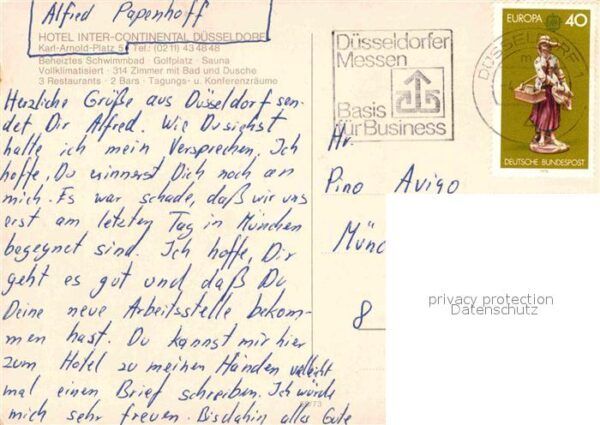 Alfred Papenhoff
HOTEL INTER-CONTINENTAL DÜSSELDORF
Karl-Arnold-Platz 5 · Tel.: (0211) 43 48 48
Beheiztes Schwimmbad · Golfplatz · Sauna
Vollklimatisiert · 314 Zimmer mit Bad und Dusche
3 Restaurants · 2 Bars · Tagungs- u. Konferenzräume
Herzliche Grüße aus Düsseldorf sen-
det Dir Alfred. Wie Du siehst
halte ich mein Versprechen. Ich
hoffe, Du erinnerst Dich noch an
mich. Es war schade, daß wir uns
erst am letzten Tag in München
begegnet sind. Ich hoffe, Dir
geht es gut und daß Du
Deine neue Arbeitsstelle bekom-
men hast. Du kannst mir hier
zum Hotel zu meinen Händen vielleicht
mal einen Brief schreiben. Ich würde
mich sehr freuen. Bis dahin alles Gute
Düsseldorfer
Messen
Basis
für Business
DÜSSELDORF 1
EUROPA 40
DEUTSCHE BUNDESPOST
Hr.
Pino Avigo
Münc
8
privacy protection
Datenschutz